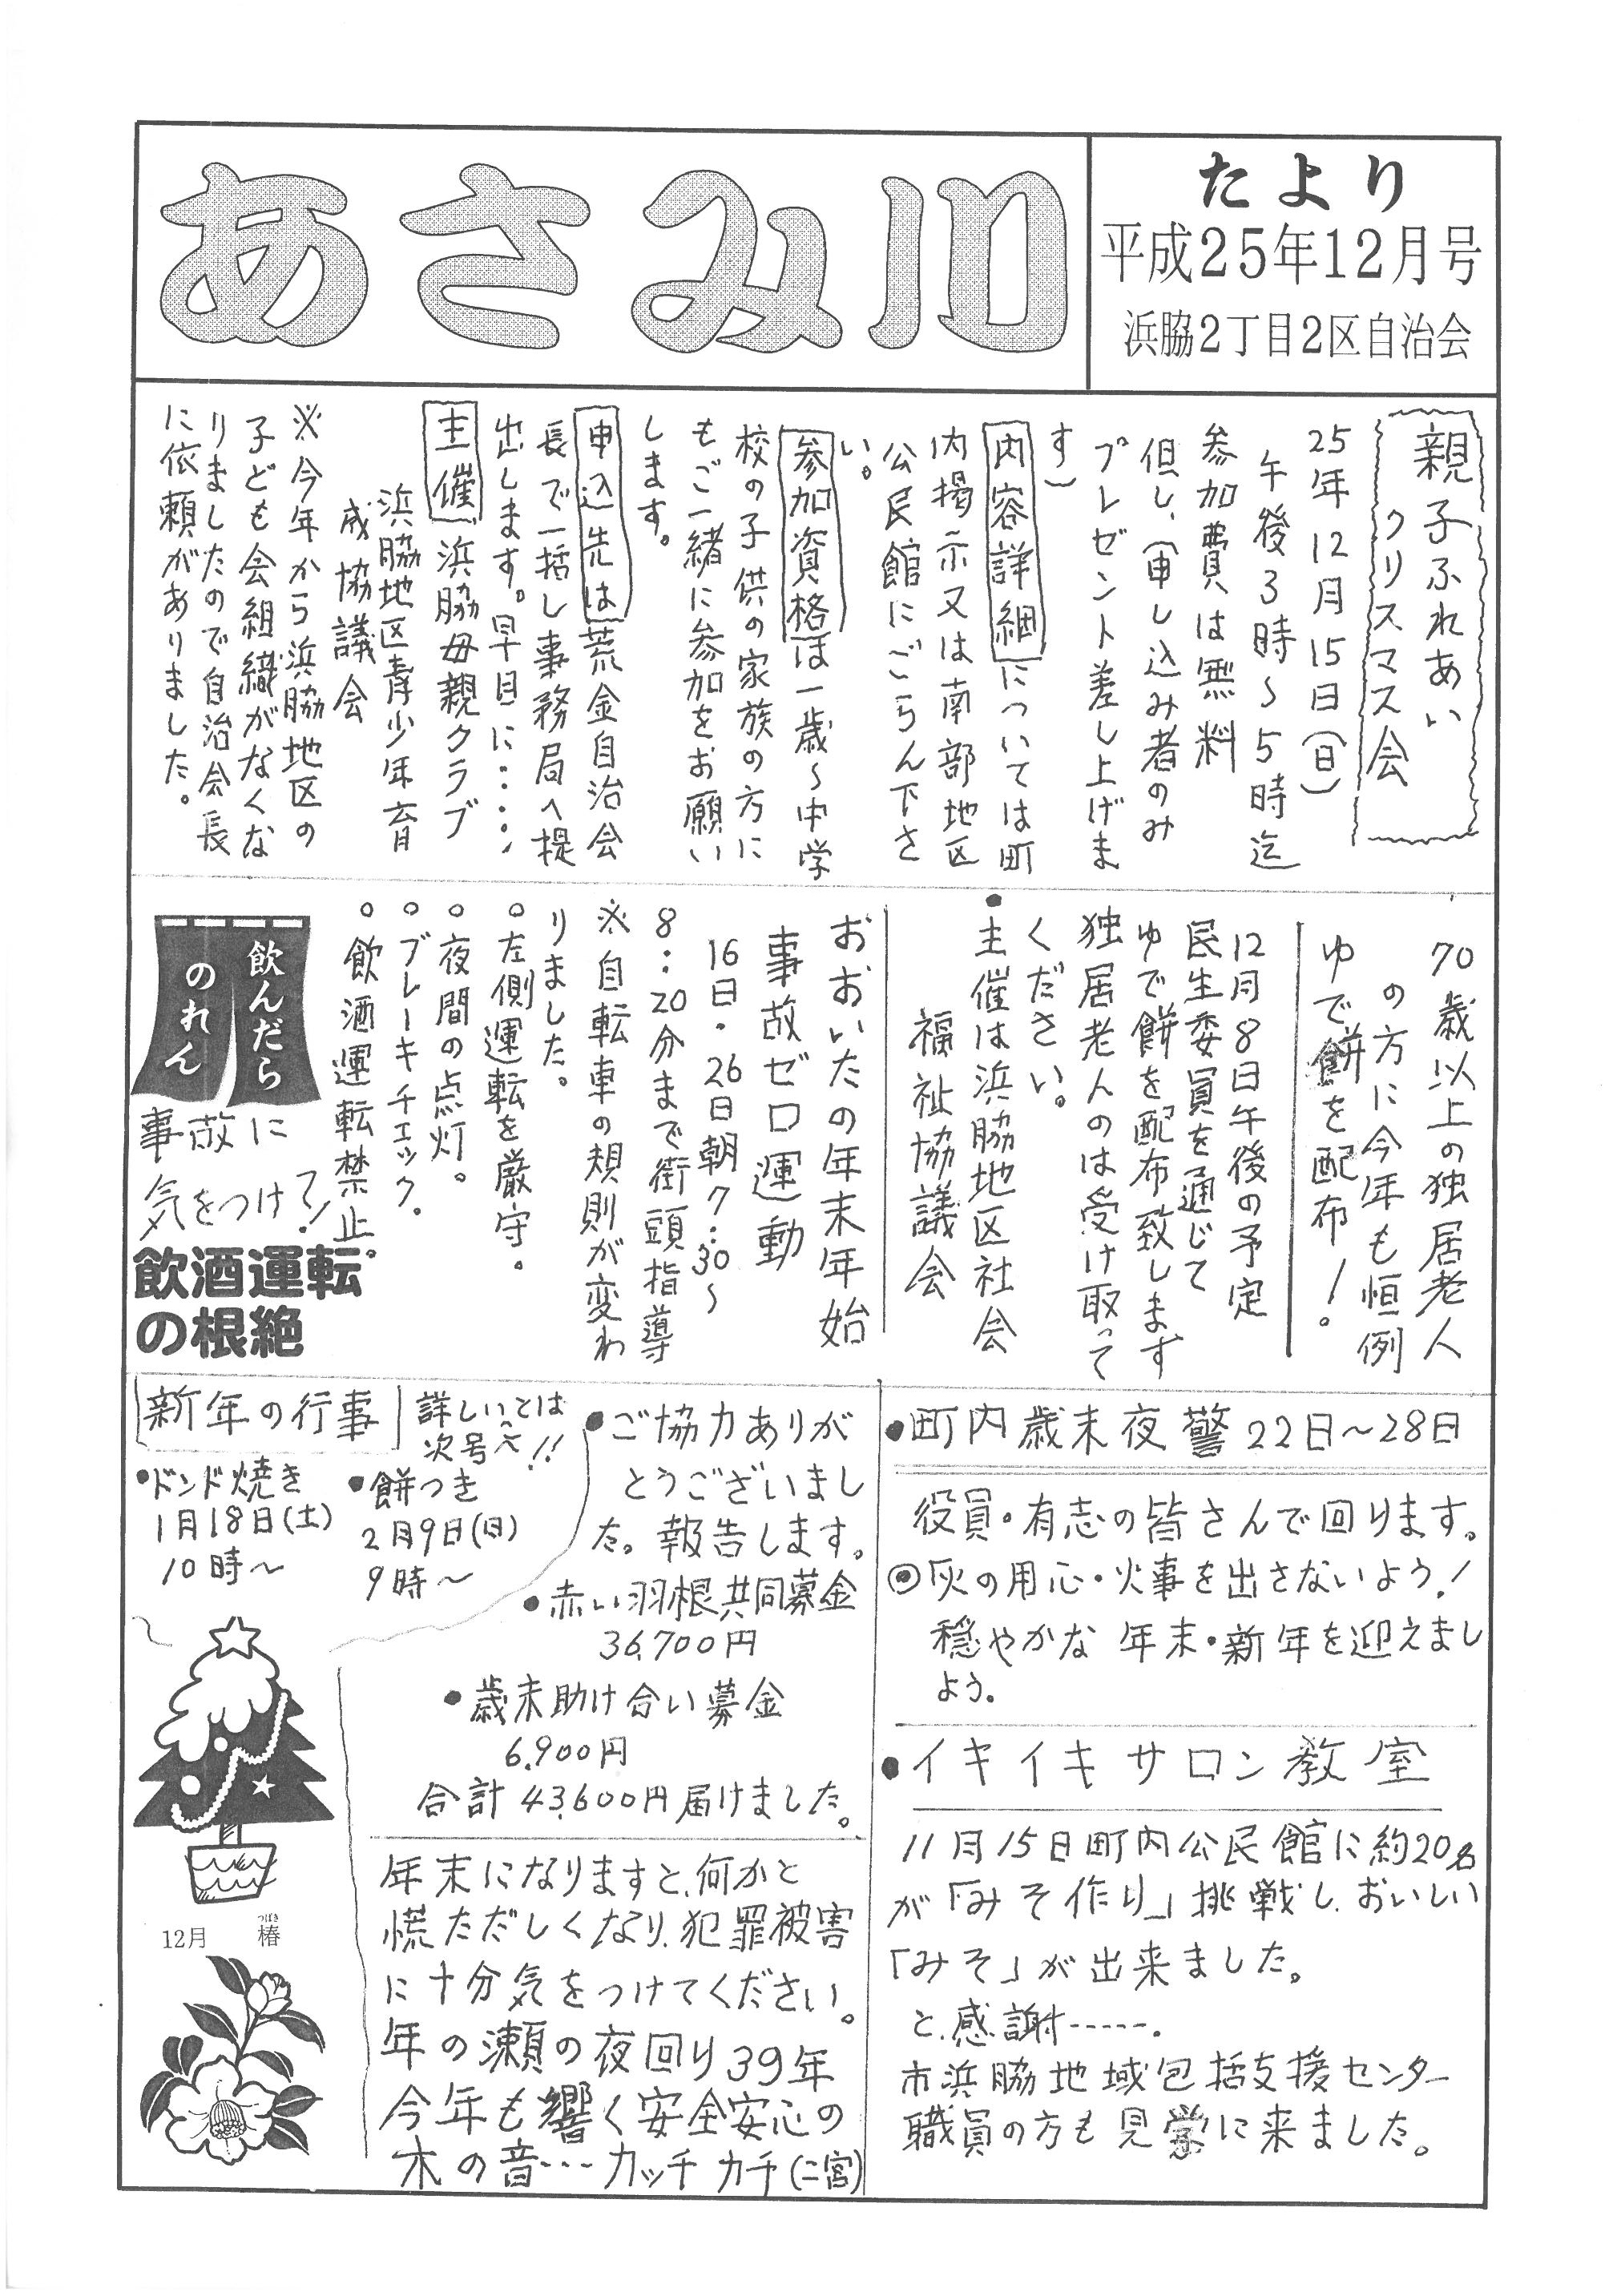 あさみ川
たより
平成25年12月号
浜脇2丁目2区自治会
親子ふれあい
クリスマス会
25年12月15日(日)
午後3時～5時迄
参加費は無料
但し、(申し込み者のみ
プレゼント差し上げま
す)
内容詳細については町
内掲示又は南部地区
公民館にごらん下さ
い。
参加資格は一歳～中学
校の子供の家族の方に
もご一緒に参加をお願い
します。
申込先は荒金自治会
長で一括し事務局へ提
出します。早目に・・・・・
主催 浜脇母親クラブ
浜脇地区青少年育
成協議会
※今年から浜脇地区の
子ども会組織がなくな
りましたので自治会長
に依頼がありました。
70歳以上の独居老人
の方に今年も恒例
ゆで餅を配布!。
12月8日午後の予定
民生委員を通じて
ゆで餅を配布致します
独居老人のは受け取って
ください。
•主催は浜脇地区社会
福祉協議会
おおいたの年末年始
事故ゼロ運動
16日・26日朝7:30～
8:20分まで街頭指導
※自転車の規則が変わ
りました。
○左側運転を厳守。
○夜間の点灯。
○ブレーキチェック。
○飲酒運転禁止。
飲んだら
のれん
事故に
気をつけて!
飲酒運転
の根絶
新年の行事
詳しいことは
次号へ!!
•ドンド焼き
1月18日(土)
10時～
•餅つき
2月9日(日)
9時～
12月 椿
つばき
•ご協力ありが
とうございまし
た。報告します。
•赤い羽根共同募金
36,700円
•歳末助け合い募金
6,900円
合計43,600円届けました。
年末になりますと、何かと
慌ただしくなり、犯罪被害
に十分気をつけてください。
年の瀬の夜回り39年
今年も響く安全安心の
木の音…カッチカチ(二宮)
•町内歳末夜警22日～28日
役員・有志の皆さんで回ります。
◎灰の用心・火事を出さないよう!
穏やかな年末・新年を迎えまし
よう。
•イキイキサロン教室
11月15日町内公民館に約20名
が「みそ作り」挑戦し、おいしい
「みそ」が出来ました。
と、感謝-----.
市浜脇地域包括支援センター
職員の方も見学に来ました。